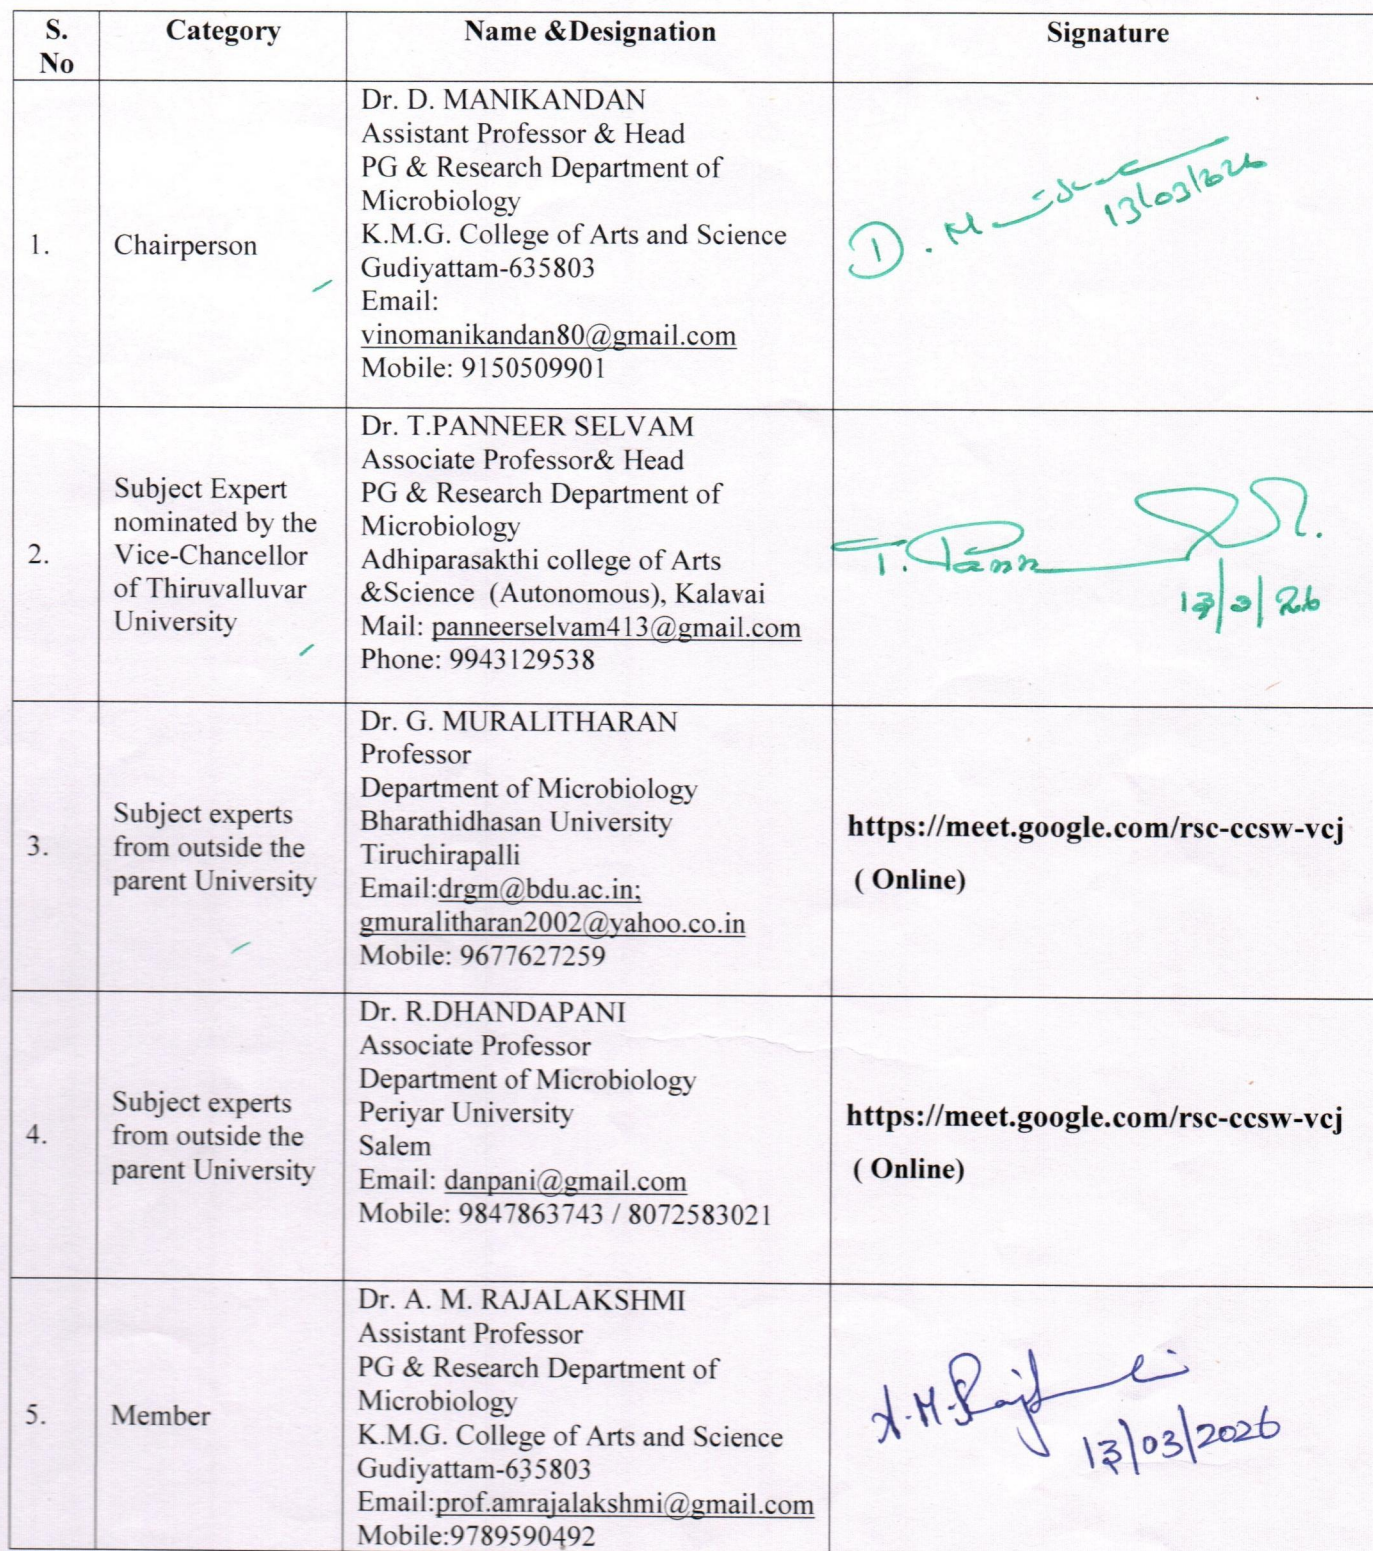 S. No
Category
Name &Designation
Signature
1.
Chairperson
Dr. D. MANIKANDAN
Assistant Professor & Head
PG & Research Department of
Microbiology
K.M.G. College of Arts and Science
Gudiyattam-635803
Email:
vinomanikandan80@gmail.com
Mobile: 9150509901
D. M
13/03/2026
2.
Subject Expert
nominated by the
Vice-Chancellor
of Thiruvalluvar
University
Dr. T.PANNEER SELVAM
Associate Professor& Head
PG & Research Department of
Microbiology
Adhiparasakthi college of Arts
&Science (Autonomous), Kalavai
Mail: panneerselvam413@gmail.com
Phone: 9943129538
T. Pann
13/3/26
3.
Subject experts
from outside the
parent University
Dr. G. MURALITHARAN
Professor
Department of Microbiology
Bharathidhasan University
Tiruchirapalli
Email:drgm@bdu.ac.in;
gmuralitharan2002@yahoo.co.in
Mobile: 9677627259
https://meet.google.com/rsc-ccsw-vcj
( Online)
4.
Subject experts
from outside the
parent University
Dr. R.DHANDAPANI
Associate Professor
Department of Microbiology
Periyar University
Salem
Email: danpani@gmail.com
Mobile: 9847863743 / 8072583021
https://meet.google.com/rsc-ccsw-vcj
( Online)
5.
Member
Dr. A. M. RAJALAKSHMI
Assistant Professor
PG & Research Department of
Microbiology
K.M.G. College of Arts and Science
Gudiyattam-635803
Email:prof.amrajalakshmi@gmail.com
Mobile:9789590492
A.M.Raj
13/03/2026